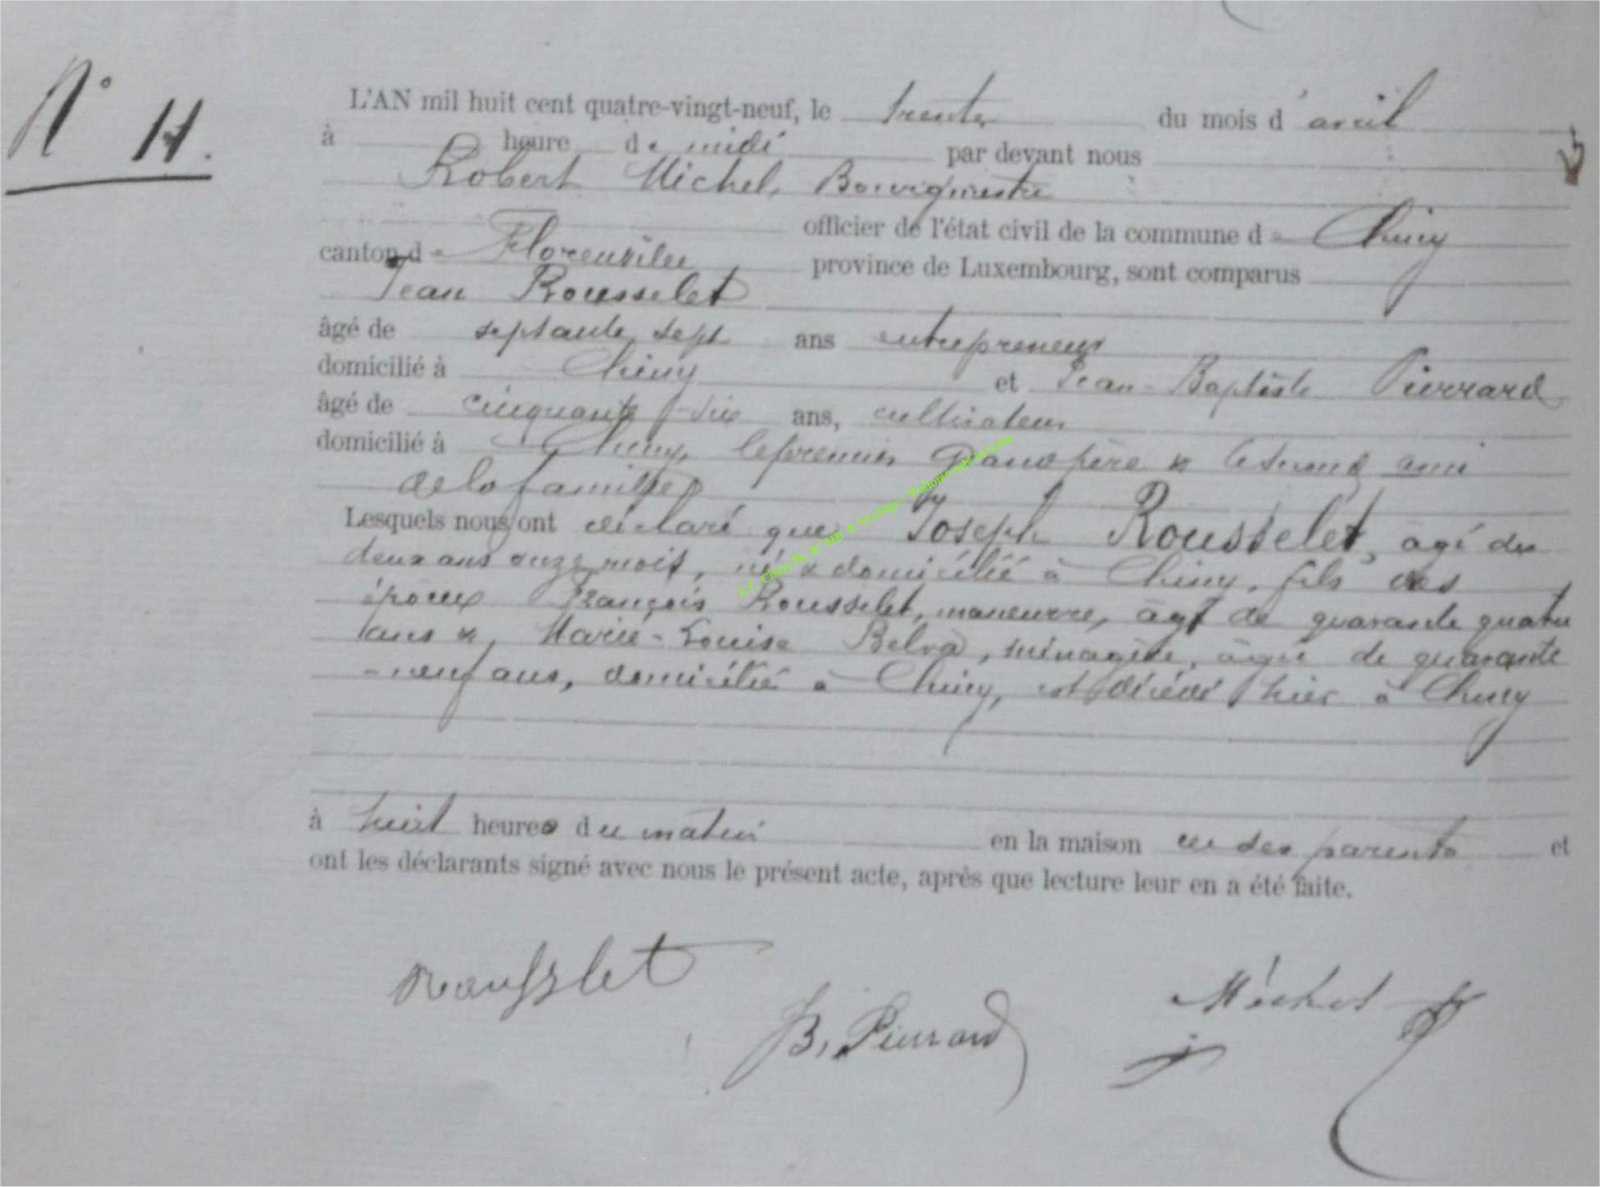 N° 11.
L'AN mil huit cent quatre-vingt-neuf, le trente du mois d'avril
à heure de midi par devant nous
Robert Michel, Bourgmestre
officier de l'état civil de la commune de Chiny
canton de Florenville province de Luxembourg, sont comparus
Jean Rousselet
âgé de septante sept ans entrepreneur
domicilié à Chiny et Jean-Baptiste Pierrard
âgé de cinquante-six ans, cultivateur
domicilié à Chiny, le premier Grand père & le second ami
de la famille
Lesquels nous ont déclaré que Joseph Rousselet, agé de
deux ans onze mois, né & domicilié à Chiny, fils des
époux François Rousselet, manœuvre, âgé de quarante quatre
ans & Marie-Louise Belva, ménagère, âgée de quarante
-neuf ans, domiciliés à Chiny, est décédé hier à Chiny
à huit heures du matin en la maison de ses parents et
ont les déclarants signé avec nous le présent acte, après que lecture leur en a été faite.
Rousslet
JB. Pierrard
Michel